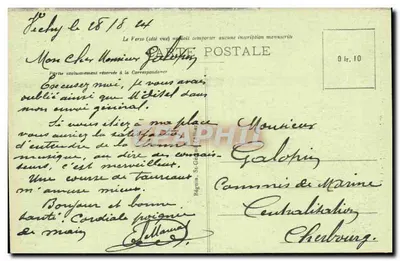 Vichy le 28/8/24
Le Verso (côté vue) ne doit comporter aucune inscription manuscrite
CARTE POSTALE
Mon Cher Monsieur Galopin
Partie exclusivement réservée à la Correspondance
0 fr. 10
Excusez moi, je vous avais
oublié ainsi que dans
mon envoi général.
Si vous étiez à ma place
vous auriez la satisfaction
d'entendre de la bonne
musique, au dire des connais-
seurs, c'est merveilleux.
Une course de taureaux
m'amuse mieux.
Bonjour et bonne
santé. Cordiale poignée
de main
Monsieur
Galopin
Commis de Marine
Centralisation
Cherbourg.